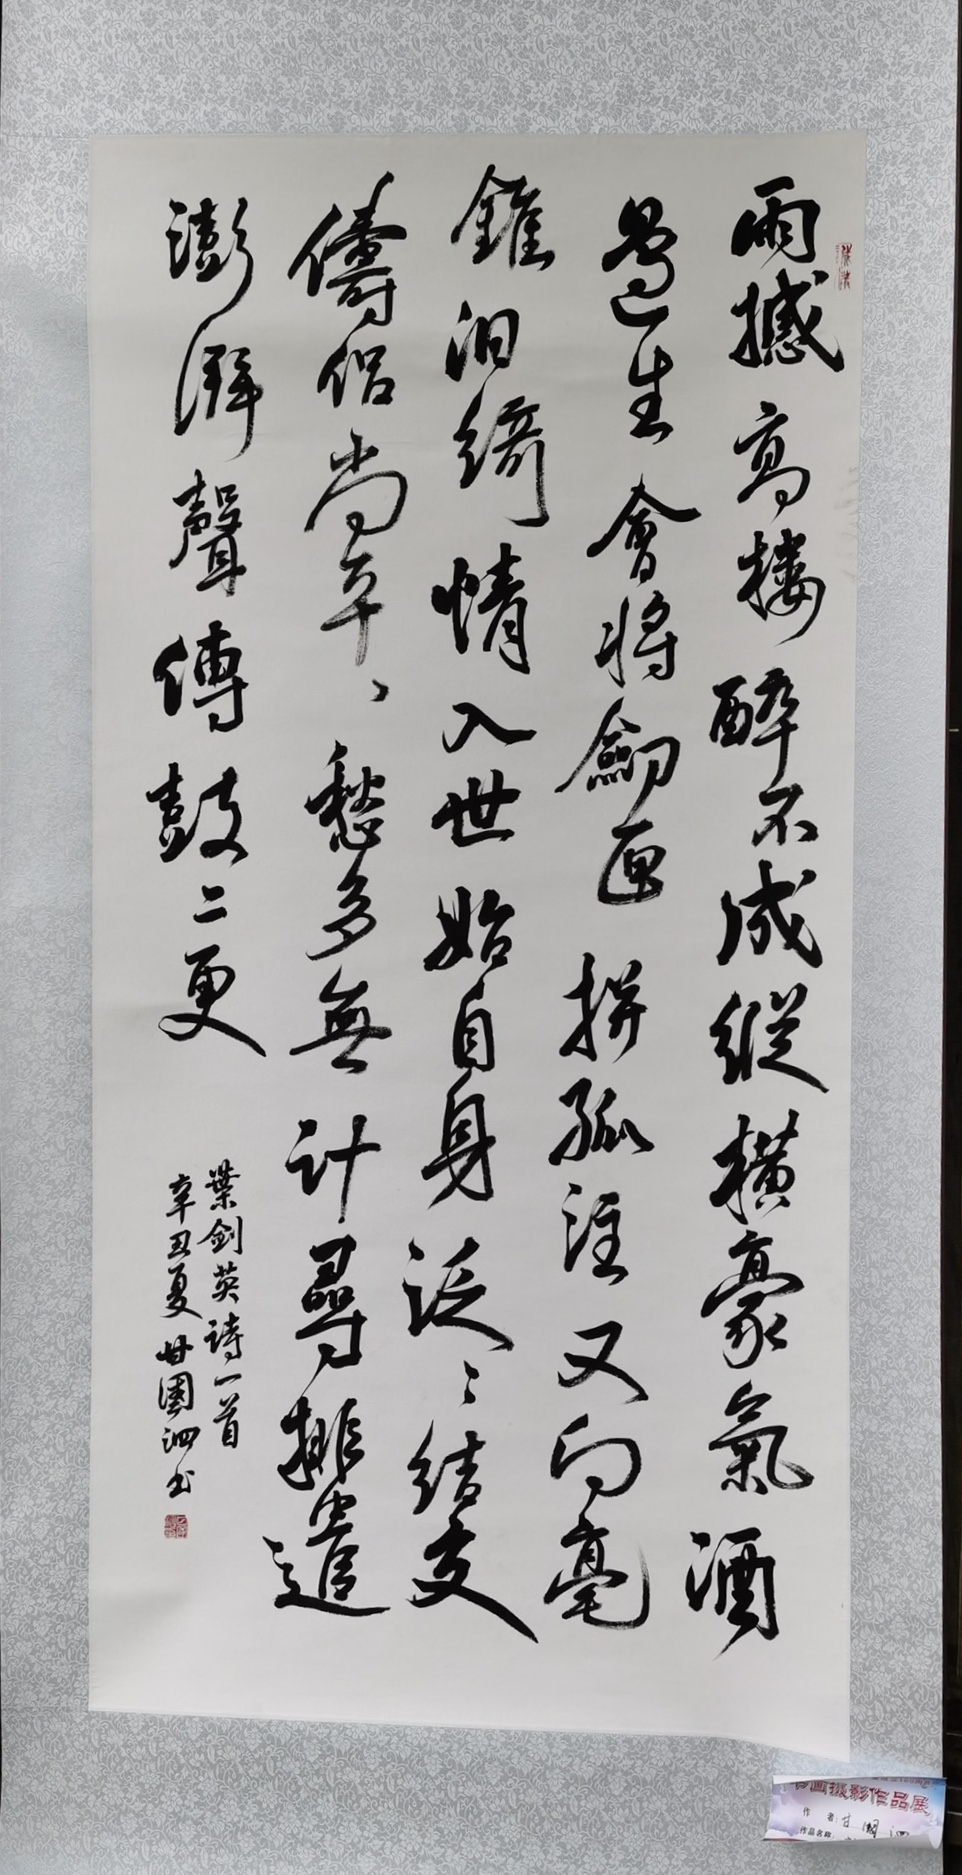 雨撼高樓醉不成縱橫豪氣酒
邊生會將劍匣拚孤注又向毫
錐汨綺情入世始自身泛〻結交
儔侶尚平〻愁多無計尋排遣
澎湃聲傳鼓二更
葉劍英詩一首
辛丑夏甘園泗书
书画摄影作品展
作者:甘園泗
作品名称: